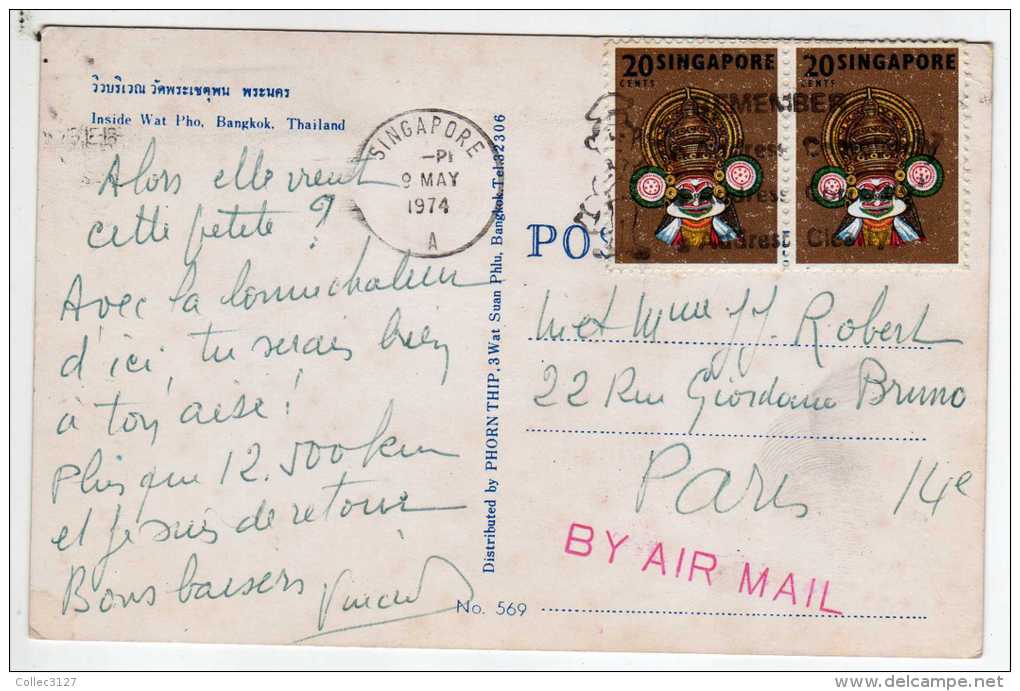 วิวบริเวณ วัดพระเชตุพน พระนคร
Inside Wat Pho, Bangkok, Thailand
Alors elle vient
cette petite ?
Avec la bonne chaleur
d'ici, tu serais bien
à ton aise !
Plus que 12.500 km
et je suis de retour
Bons baisers
No. 569
Distributed by PHORN THIP, 3 Wat Suan Phlu, Bangkok. Tel. 32306
SINGAPORE
-PI
9 MAY
1974
A
20 SINGAPORE
CENTS
20 SINGAPORE
CENTS
REMEMBER
Address
Address
Address
POS
M et Mme JJ. Robert
22 Rue Giordano Bruno
Paris 14e
BY AIR MAIL
Collec3127
www.delcampe.net